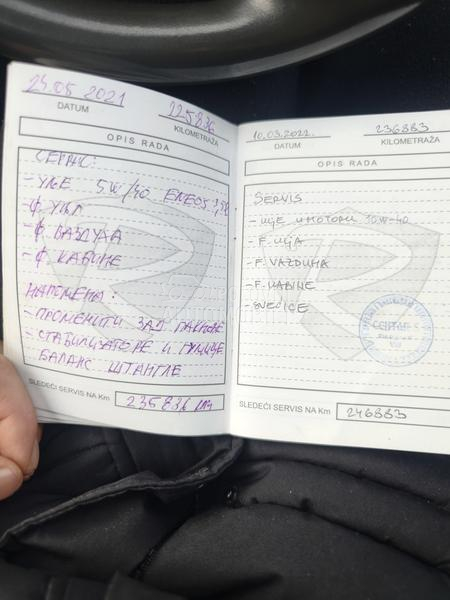 24.05 2021
225836
DATUM
KILOMETRAŽA
OPIS RADA
СЕРВИС:
- УЉЕ 5W/40 ENEOS 3,5L
- Ф. УЉА
- Ф. ВАЗДУХА
- Ф. КАБИНЕ
НАПОМЕНЫ:
- ПРОМЕНИТИ ЗАД
- СТАБИЛИЗАТОРЕ И ГУМИЦЕ
БАЛАНС ШТАНГЛЕ
SLEDEĆI SERVIS NA Km
235836 km
10.03.2022.
236883
DATUM
KILOMETRAŽA
OPIS RADA
SERVIS
- ULJE U MOTORU 10W-40
- F. ULJA
- F. VAZDUHA
- F. KABINE
- SVEĆICE
SLEDEĆI SERVIS NA Km
246883